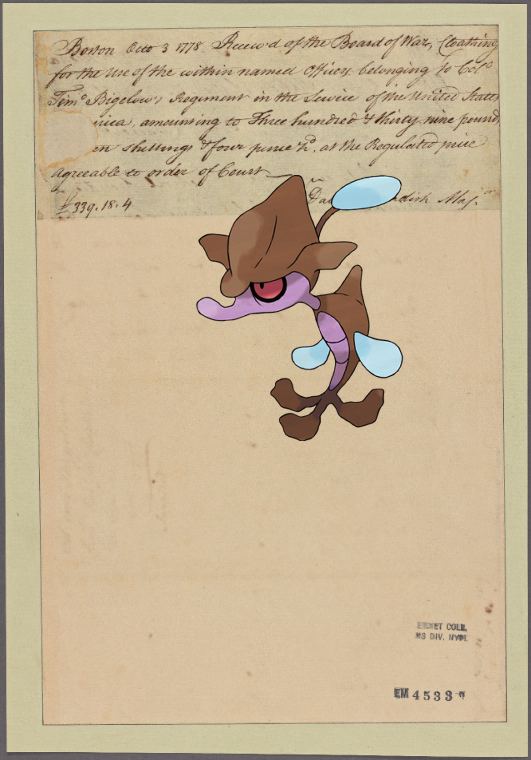 Boston Octo 3 1778. Receiv'd of the Board of War, Cloathing
for the use of the within named Officers belonging to Colo
Timo Bigelow's Regiment in the Service of the United States
rica, amounting to Three hundred & thirty nine pounds
en shillings & four pence Ld. at the Regulated price
agreeable to order of Court
£339.18.4 Maj.
EMMET COLL.
MS DIV. NYPL
EM 4533